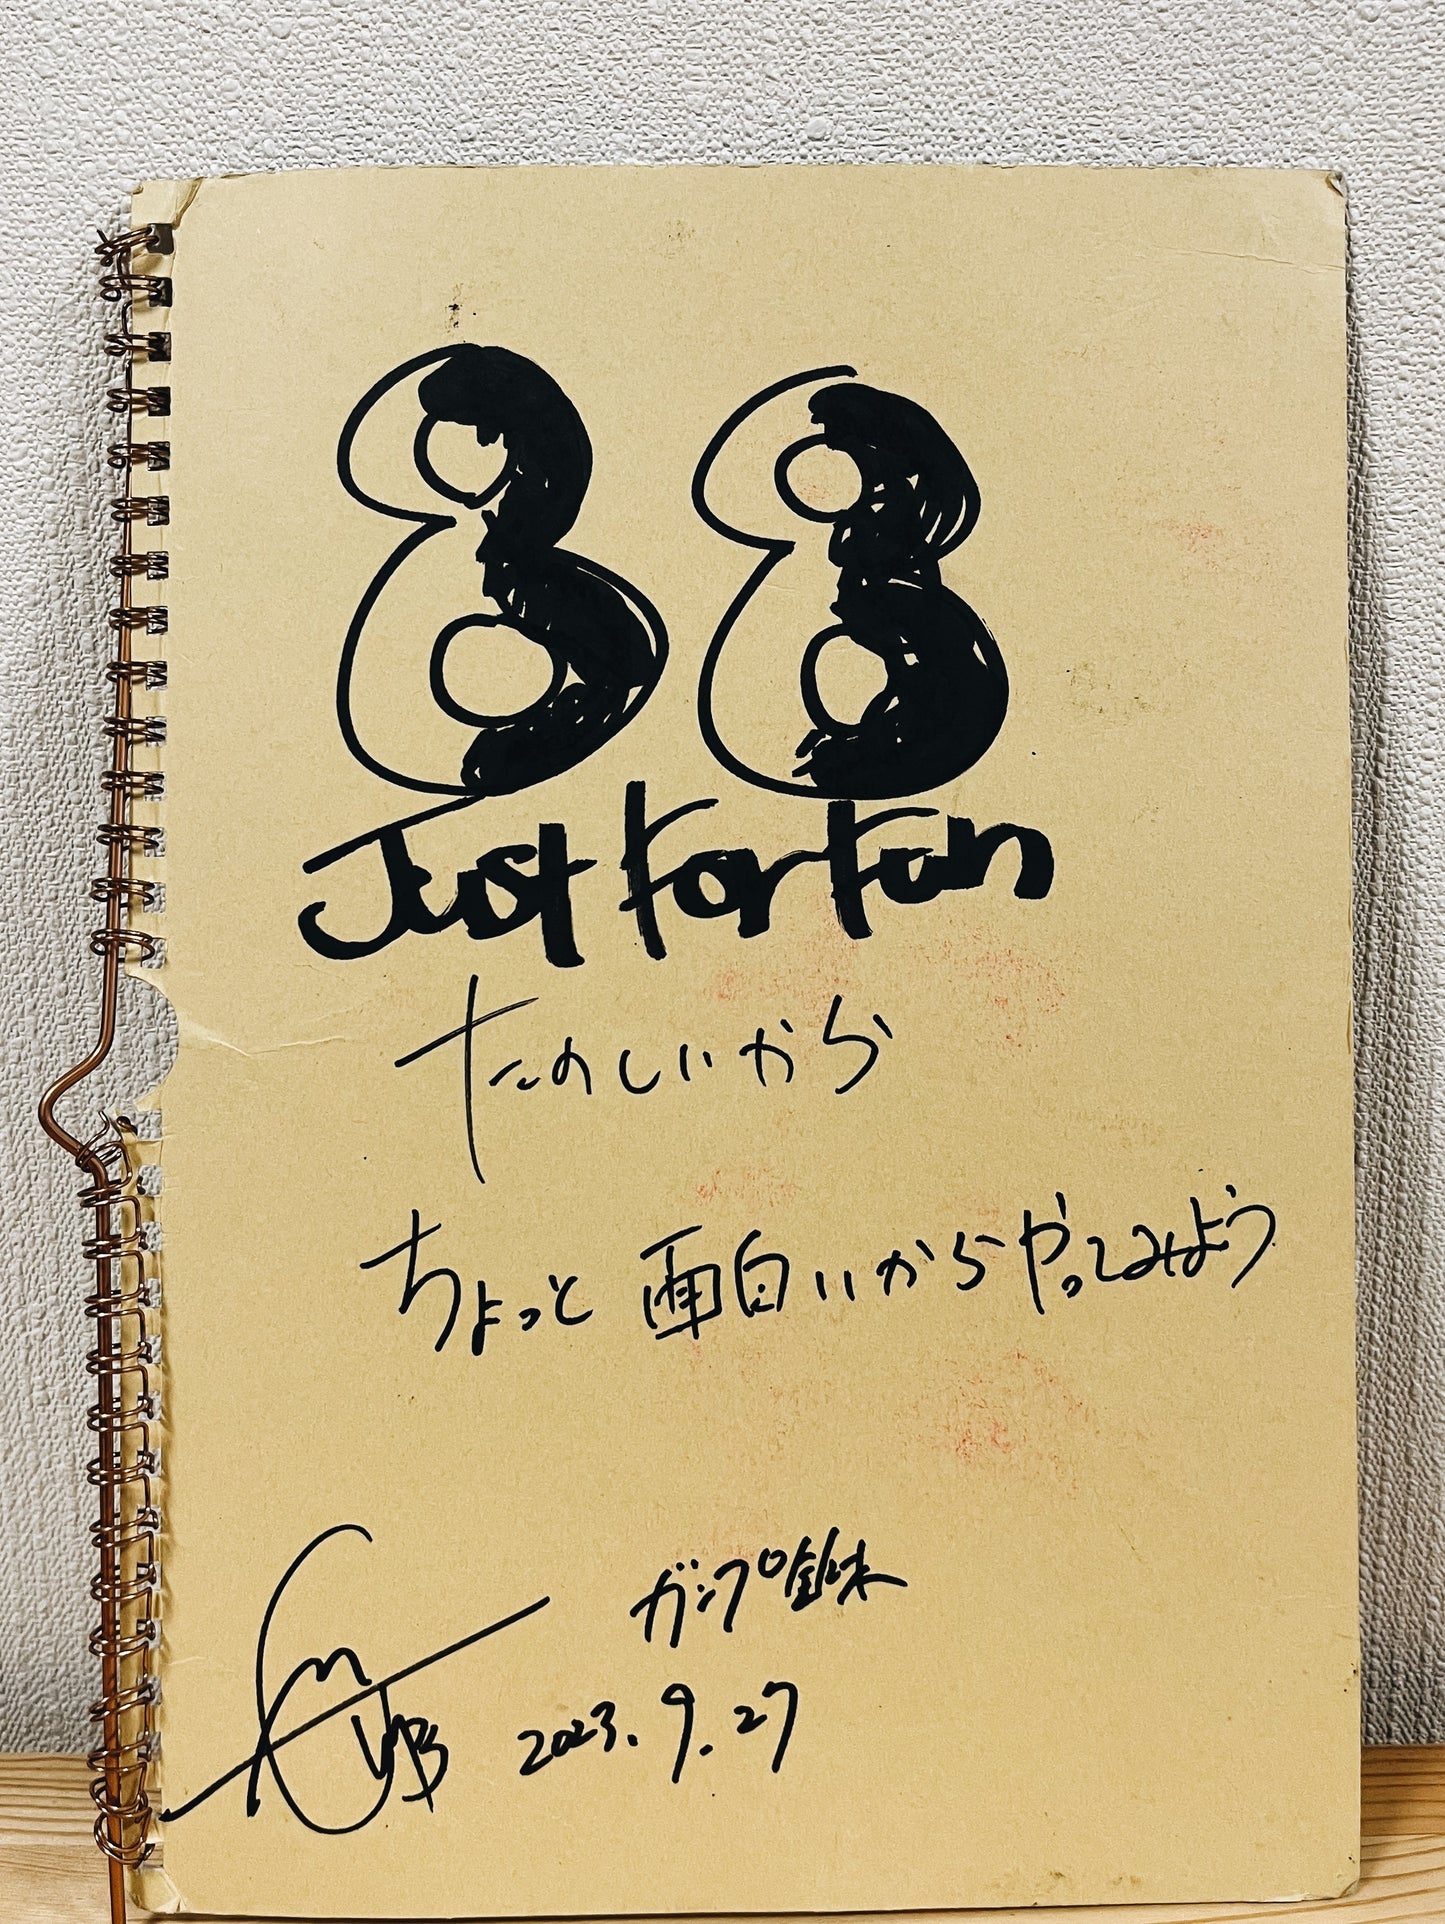 88
Just For Fun
たのしいから
ちょっと面白いからやってみよう
ガンプ鈴木
2023.9.27